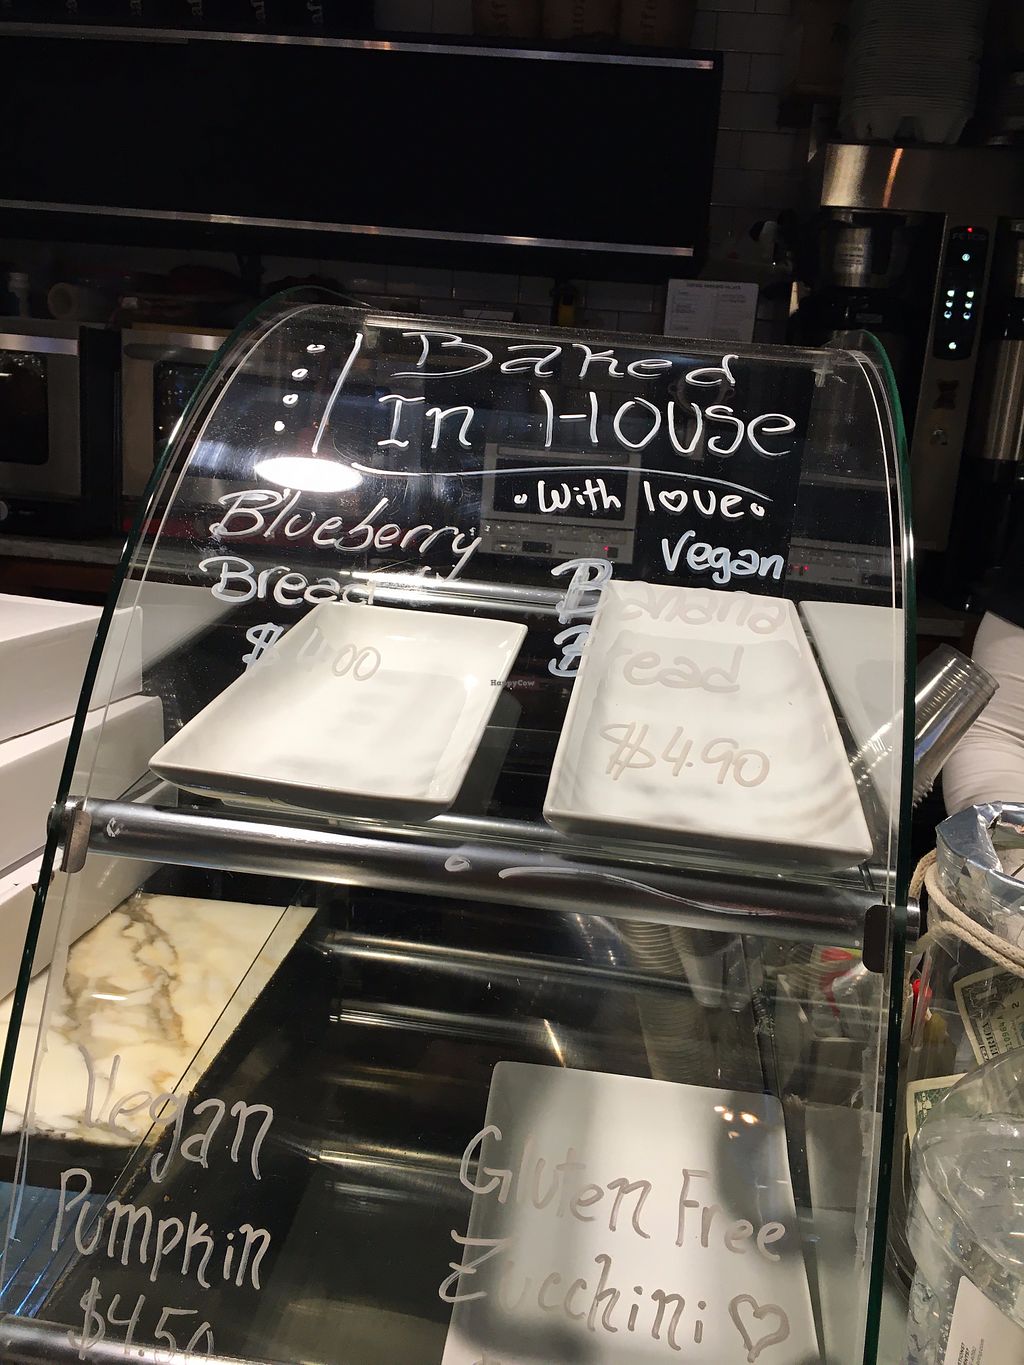 Baked
In House
With love
Blueberry
Bread
$4.00
Vegan
Banana
Bread
$4.90
HappyCow
Vegan
Pumpkin
$4.50
Gluten Free
Zucchini